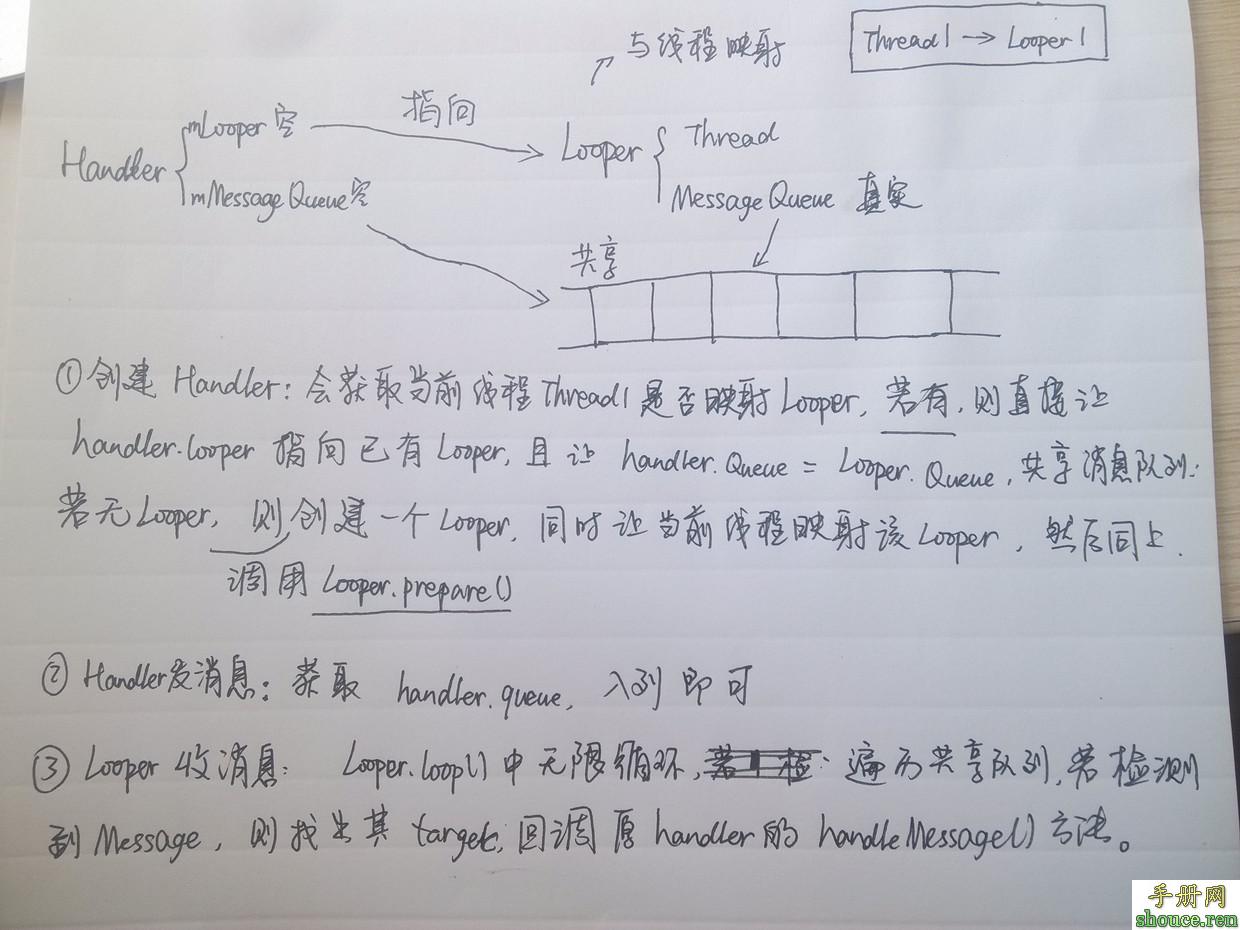 与线程映射
Thread1 → Looper1
Handler
mLooper空
指向
Looper
Thread
mMessageQueue空
MessageQueue 真实
共享
①创建 Handler: 会获取当前线程Thread1是否映射Looper, 若有, 则直接让
handler.looper 指向已有Looper, 且让 handler.Queue = Looper.Queue, 共享消息队列;
若无Looper, 则创建一个Looper, 同时让当前线程映射该Looper, 然后同上.
调用 Looper.prepare()
② Handler发消息: 获取 handler.queue, 入列即可
③ Looper 收消息: Looper.loop()中无限循环, 遍历共享队列, 若检测
到Message, 则找出其 target, 回调原handler的 handleMessage()方法。
手册网
shouce.ren